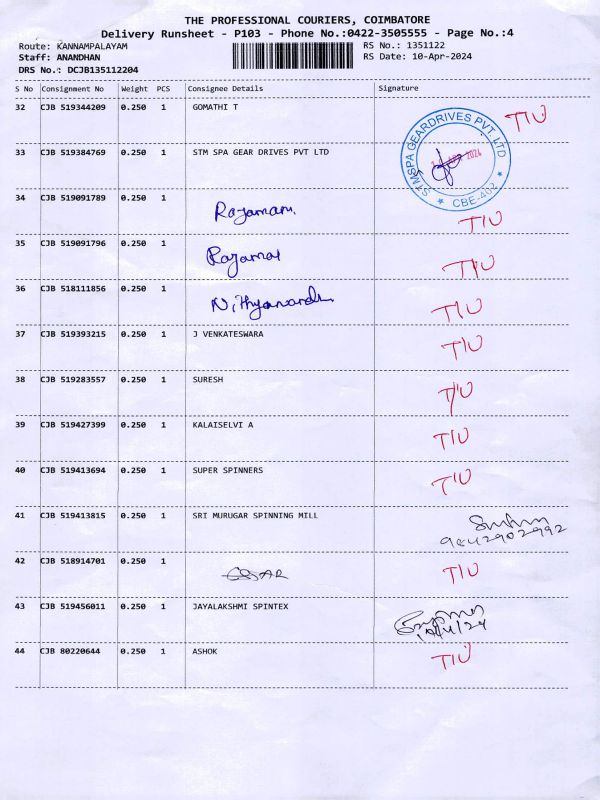 THE PROFESSIONAL COURIERS, COIMBATORE
Delivery Runsheet - P103 - Phone No.:0422-3505555 - Page No.:4
Route: KANNAMPALAYAM RS No.: 1351122
Staff: ANANDHAN RS Date: 10-Apr-2024
DRS No.: DCJB135112204
S No Consignment No Weight PCS Consignee Details Signature
32 CJB 519344209 0.250 1 GOMATHI T T/U
33 CJB 519384769 0.250 1 STM SPA GEAR DRIVES PVT LTD
STMSPA GEARDRIVES PVT. LTD
APR 2024
★ CBE-402 ★
34 CJB 519091789 0.250 1 Rajamani. T/U
35 CJB 519091796 0.250 1 Rajamai T/U
36 CJB 518111856 0.250 1 T/U
37 CJB 519393215 0.250 1 J VENKATESWARA T/U
38 CJB 519283557 0.250 1 SURESH T/U
39 CJB 519427399 0.250 1 KALAISELVI A T/U
40 CJB 519413694 0.250 1 SUPER SPINNERS T/U
41 CJB 519413815 0.250 1 SRI MURUGAR SPINNING MILL
9842902992
42 CJB 518914701 0.250 1 T/U
43 CJB 519456011 0.250 1 JAYALAKSHMI SPINTEX
10/4/24
44 CJB 80220644 0.250 1 ASHOK T/U